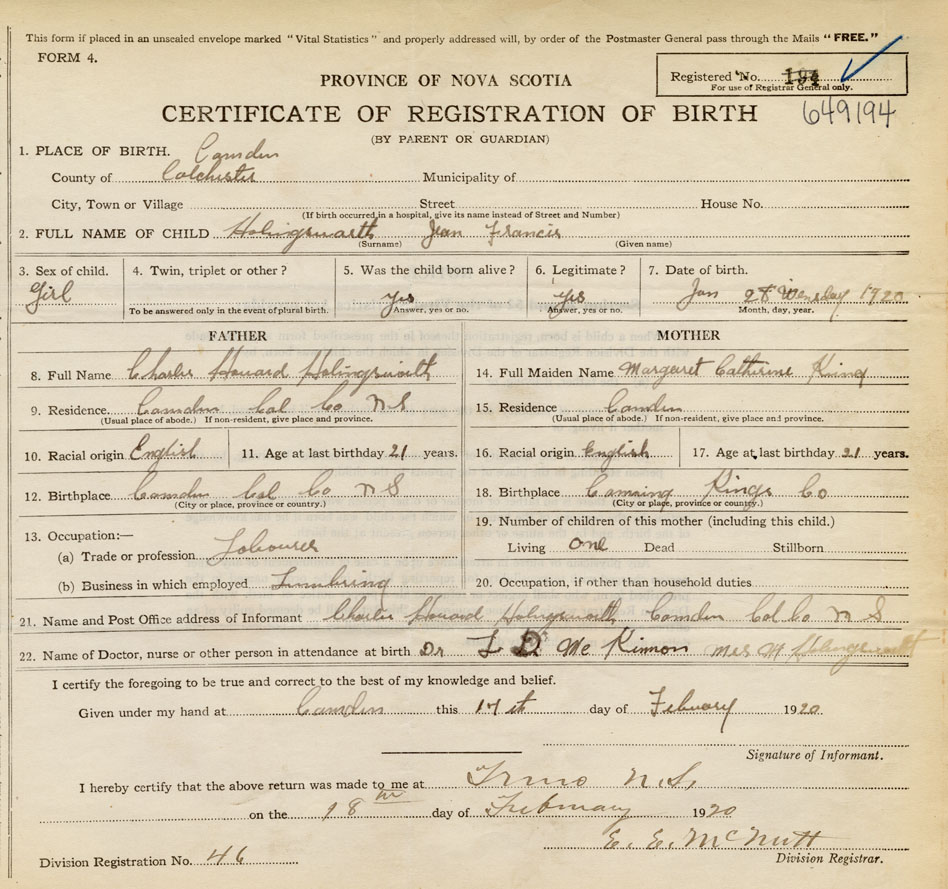 This form if placed in an unsealed envelope marked "Vital Statistics" and properly addressed will, by order of the Postmaster General pass through the Mails "FREE."
FORM 4.
Registered No. 194
For use of Registrar General only.
PROVINCE OF NOVA SCOTIA
649194
CERTIFICATE OF REGISTRATION OF BIRTH
(BY PARENT OR GUARDIAN)
1. PLACE OF BIRTH. Camden
County of Colchester Municipality of
City, Town or Village Street House No.
(If birth occurred in a hospital, give its name instead of Street and Number)
2. FULL NAME OF CHILD Holingswarth Jean Francis
(Surname) (Given name)
3. Sex of child. 4. Twin, triplet or other? 5. Was the child born alive? 6. Legitimate? 7. Date of birth.
Girl yes yes Jan 28 Wensday 1920
To be answered only in the event of plural birth. Answer, yes or no. Answer, yes or no. Month, day, year.
FATHER MOTHER
8. Full Name Charles Howard Holingsworth 14. Full Maiden Name Margaret Catherine King
9. Residence. Camden Col Co N S 15. Residence Camden
(Usual place of abode.) If non-resident, give place and province. (Usual place of abode.) If non-resident, give place and province.
10. Racial origin English 11. Age at last birthday 21 years. 16. Racial origin English 17. Age at last birthday 21 years.
12. Birthplace Camden Col Co N S 18. Birthplace Canning Kings Co
(City or place, province or country.) (City or place, province or country.)
13. Occupation:— 19. Number of children of this mother (including this child.)
(a) Trade or profession Labourer Living One Dead Stillborn
(b) Business in which employed Lumbring 20. Occupation, if other than household duties
21. Name and Post Office address of Informant Charles Howard Holingsworth Camden Col Co N S
22. Name of Doctor, nurse or other person in attendance at birth Dr D Mc Kinnon Mrs M Holingsworth
I certify the foregoing to be true and correct to the best of my knowledge and belief.
Given under my hand at Camden this 17th day of Febuary 1920
Signature of Informant.
I hereby certify that the above return was made to me at Truro N.S.
on the 18th day of February 1920
E. E. McNutt
Division Registration No. 46 Division Registrar.